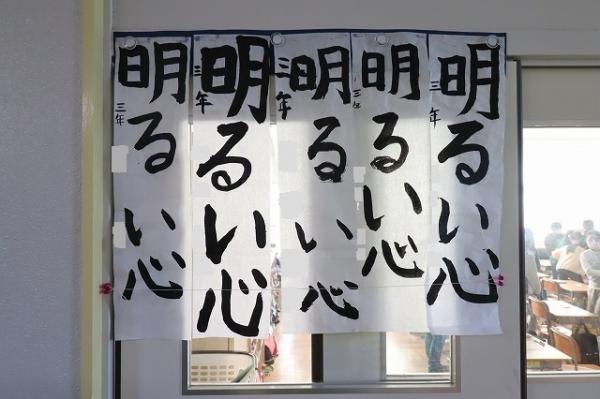 明るい心
三年
明るい心
三年
明るい心
三年
明るい心
三年
明るい心
三年